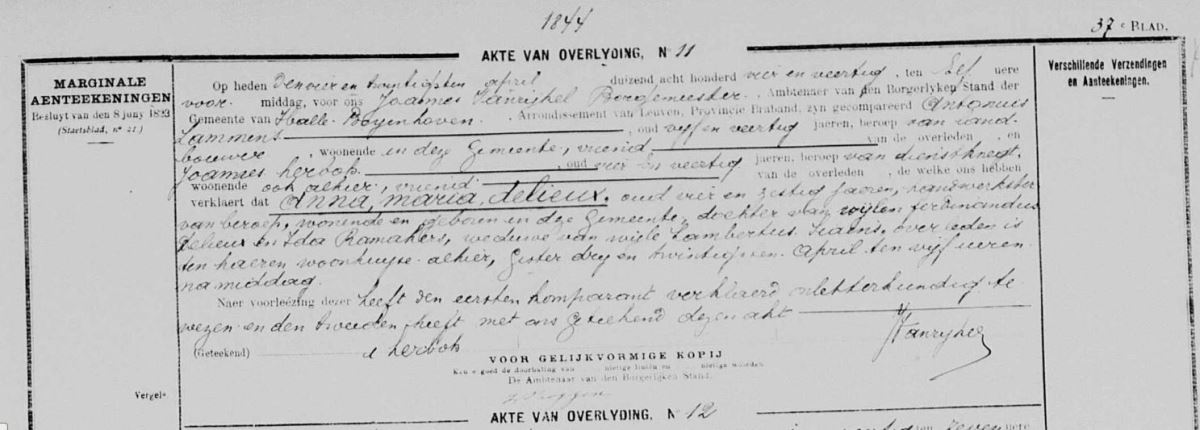 1844
37e BLAD.
AKTE VAN OVERLYDING, N 11
MARGINALE
AENTEEKENINGEN
Besluyt van den 8 juny 1823
(Staetsblad, n° 21.)
Verschillende Verzendingen
en Aanteekeningen.
Op heden den vier en twintigsten april duizend acht honderd vier en veertig, ten elf uere
voor middag, voor ons Joannes Vanrijkel Borgemeester, Ambtenaer van den Borgerlyken Stand der
Gemeente van Halle-Boyenhoven, Arrondissement van Leuven, Provincie Braband, zyn gecompareerd Antonius
Lammens, oud vyf en veertig jaeren, beroep van land-
bouwer, woonende in deze Gemeente, vriend van de overleden, en
Joannes herbots, oud vier en veertig jaeren, beroep van dienstknegt,
woonende ook alhier, vriend van de overleden, de welke ons hebben
verklaert dat Anna, maria, delieux, oud vier en zestig jaeren, handwerkster
van beroep, woonende en geboren in deze Gemeente, dochter van wylen ferdinandus
delieux en Ida Ramakers, weduwe van wyle Lambertus, overleden is
ten haeren woonhuyse alhier, gister dry en twintigsten April ten vyf ueren
na middag.
Naer voorleézing dezer heeft den eersten komparant verklaerd onletterkundig te
wezen en den tweeden heeft met ons geteekend dezen akt
(Geteekend) herbots Vanrykel
VOOR GELIJKVORMIGE KOPIJ
Keu e goed de doorhaling van nietige liniën en nietige woorden
De Ambtenaar van den Borgerlijken Stand.
Vergel
AKTE VAN OVERLYDING, N 12
ten zeven uere